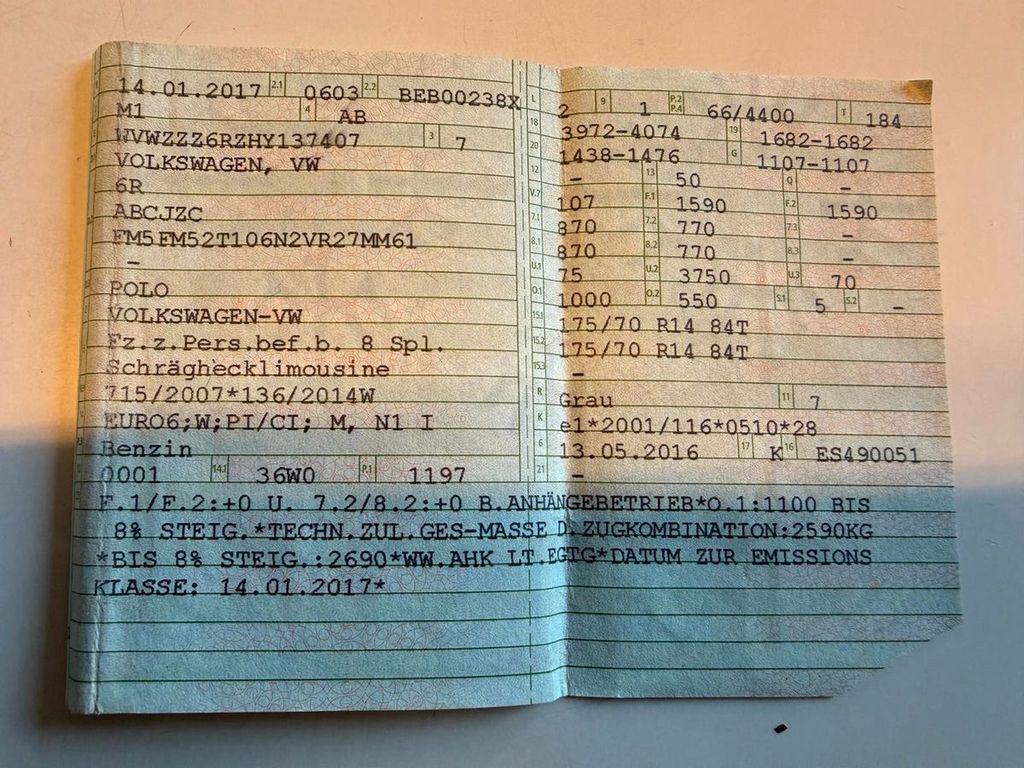 14.01.2017 2.1 0603 2.2 BEB00238X
M1 4 AB
WVWZZZ6RZHY137407 3 7
VOLKSWAGEN, VW
6R
ABCJZC
FM5FM52T106N2VR27MM61
-
POLO
VOLKSWAGEN-VW
Fz.z.Pers.bef.b. 8 Spl.
Schräghecklimousine
715/2007*136/2014W
EURO6;W;PI/CI; M, N1 I
Benzin
0001 14.1 36W0 P.1 1197
L 2 9 1 P.2 P.4 66/4400 T 184
18 3972-4074 19 1682-1682
20 1438-1476 G 1107-1107
12 - 13 50 Q -
V.7 107 F.1 1590 F.2 1590
7.1 870 7.2 770 7.3 -
8.1 870 8.2 770 8.3 -
U.1 75 U.2 3750 U.3 70
O.1 1000 O.2 550 S.1 5 S.2 -
15.1 175/70 R14 84T
15.2 175/70 R14 84T
15.3 -
R Grau 11 7
K e1*2001/116*0510*28
6 13.05.2016 17 K 16 ES490051
21 -
F.1/F.2:+0 U. 7.2/8.2:+0 B.ANHÄNGEBETRIEB*O.1:1100 BIS
8% STEIG.*TECHN.ZUL.GES-MASSE D.ZUGKOMBINATION:2590KG
*BIS 8% STEIG.:2690*WW.AHK LT.EGTG*DATUM ZUR EMISSIONS
KLASSE: 14.01.2017*